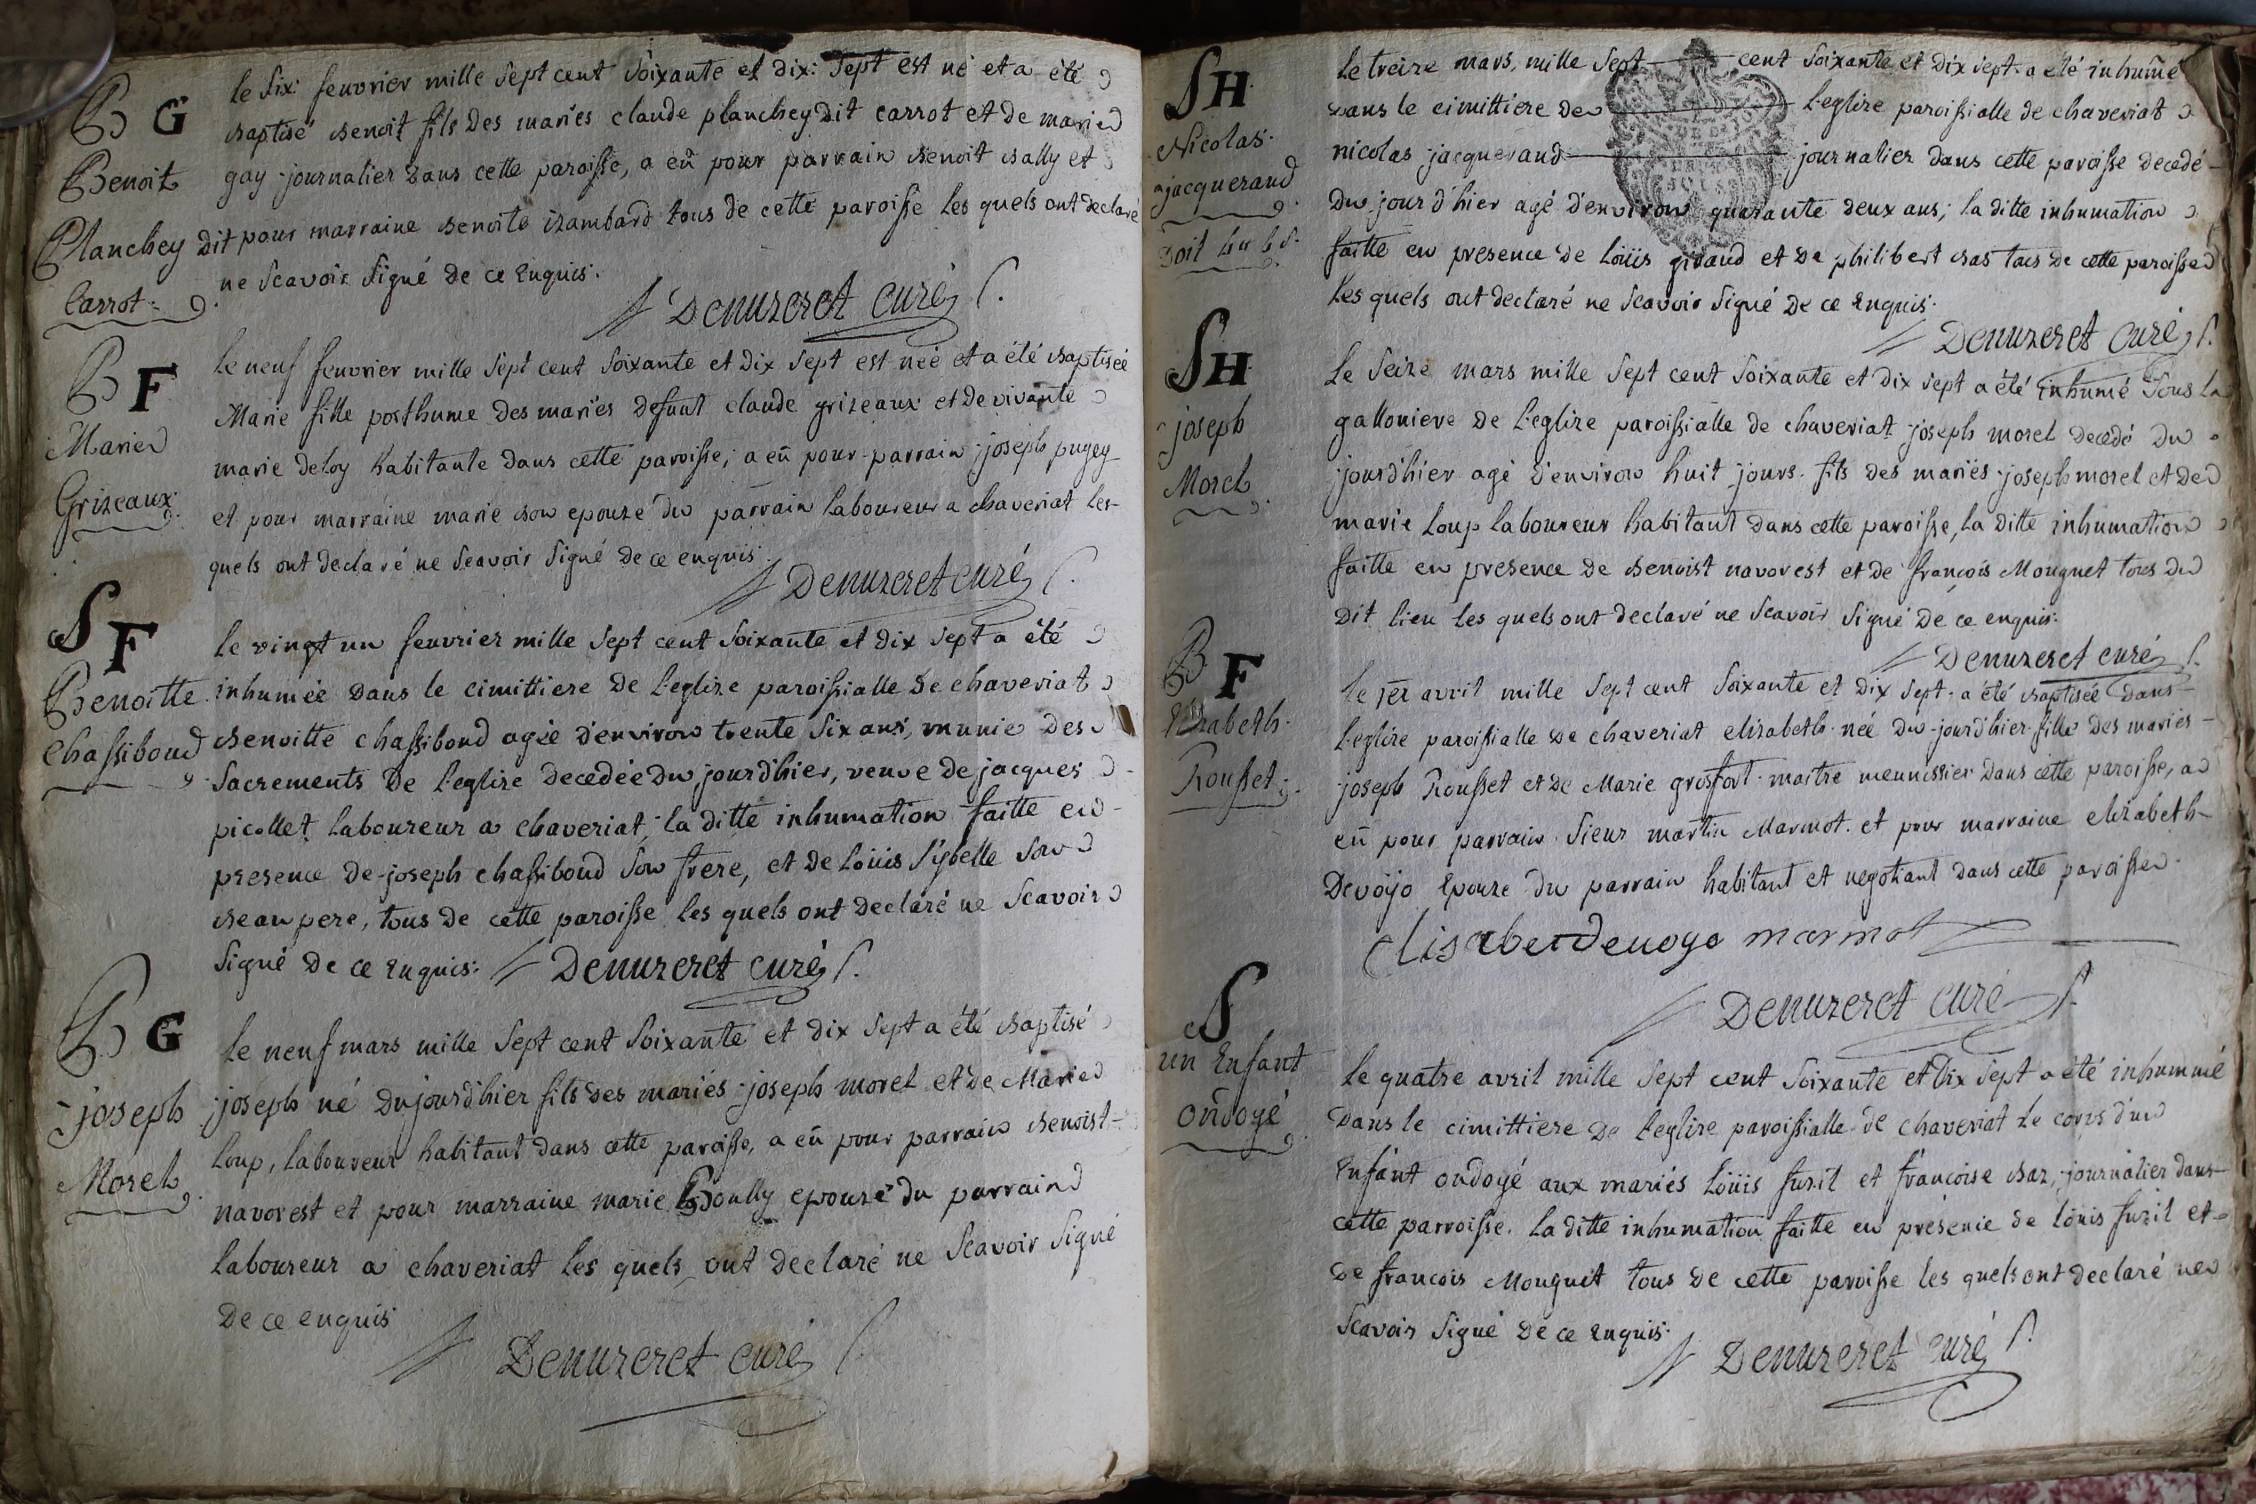 B G
Benoit
Planchey dit
Carrot
le six fevvrier mille sept cent soixante et dix: sept est né et a été
baptisé benoit fils des mariés claude planchey dit carrot et de marie
gay journalier dans cette paroisse, a eû pour parrain benoit bally et
pour marraine benoite izambard tous de cette paroisse les quels ont declaré
ne scavoir signé de ce enquis.
Denuzeret curé
B F
Marie
Grizeaux
le neuf fevvrier mille sept cent soixante et dix sept est née et a été baptisée
Marie fille posthume des mariés defunt claude grizeaux et de vivante
marie deloy habitante dans cette paroisse; a eû pour parrain joseph pugey
et pour marraine marie bon epouze du parrain laboureur a chaveriat les-
quels ont declaré ne scavoir signé de ce enquis
Denuzeret curé
S F
Benoitte
Chassiboud
le vingt un fevvrier mille sept cent soixante et dix sept a été
inhumée dans le cimittiere de l'eglize paroissialle de chaveriat
benoitte chassiboud agée d'environ trente six ans, munie des
sacrements de l'eglize decedée du jourd'hier, veuve de jacques
picollet laboureur a chaveriat; la ditte inhumation faitte en
presence de joseph chassiboud son frere, et de loüis sybelle son
beau pere, tous de cette paroisse les quels ont declaré ne scavoir
signé de ce enquis. Denuzeret curé
B G
joseph
Morel
le neuf mars mille sept cent soixante et dix sept a été baptisé
joseph né dujourd'hier fils des mariés joseph morel et de Marie
loup, laboureur habitant dans cette paroisse, a eû pour parrain benoist
navorest et pour marraine marie Boully epouze du parrain
laboureur a chaveriat les quels ont declaré ne scavoir signé
de ce enquis
Denuzeret curé
SH
Nicolas
jacqueraud
doit
le treize mars, mille sept cent soixante et dix sept a été inhumé
dans le cimittiere de l'eglize paroissialle de chaveriat
nicolas jacqueraud journalier dans cette paroisse decedé
du jourd'hier agé d'environ quarante deux ans; la ditte inhumation
faitte en presence de loüis giraud et de philibert bas tous de cette paroisse
les quels ont declaré ne scavoir signé de ce enquis.
Denuzeret curé
SH
joseph
Morel
Le seize mars mille sept cent soixante et dix sept a été inhumé sous la
galloniere de l'eglize paroissialle de chaveriat joseph morel decedé du
jourd'hier agé d'environ huit jours fils des mariés joseph morel et de
marie loup laboureur habitant dans cette paroisse, la ditte inhumation
faitte en presence de benoist navorest et de françois Mouguet tous du
dit lieu les quels ont declaré ne scavoir signé de ce enquis.
Denuzeret curé
B F
Elizabeth
Rousset
le 1er avril mille sept cent soixante et dix sept a été baptisée dans
l'eglize paroissialle de chaveriat elizabeth née du jourd'hier fille des mariés
joseph Rousset et de Marie grosfort maitre meunissier dans cette paroisse, a
eû pour parrain sieur martin Marmot. et pour marraine elizabeth
Devoyo Epouze du parrain habitant et negotiant dans cette paroisse
Elisabet devoyo marmot
Denuzeret curé
S
un Enfant
ondoyé
le quatre avril mille sept cent soixante et dix sept a été inhummé
dans le cimittiere de l'eglize paroissialle de chaveriat le corps d'un
Enfant ondoyé aux mariés loüis fuzil et françoise baz, journalier dans
cette parroisse. la ditte inhumation faitte en presence de loüis fuzil et
de françois Mouguet tous de cette paroisse les quels ont declaré ne
scavoir signé de ce enquis.
Denuzeret curé